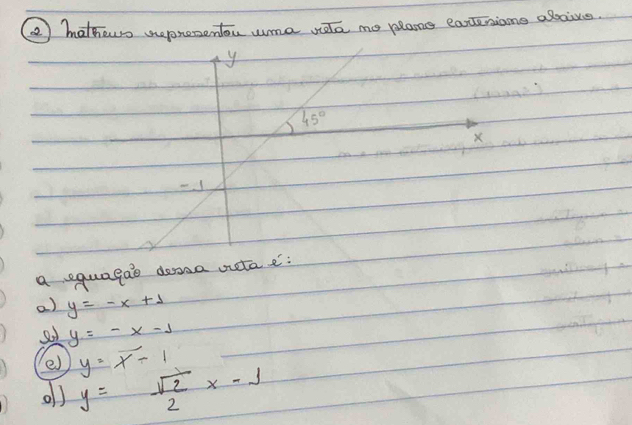 2 Matheus representou uma reta no plano cartesiano abaixo.
y
45°
x
-1
a equação dessa reta é:
a) y = -x + 1
b) y = - x - 1
c) y = x - 1
d) y = √2/2 x - 1